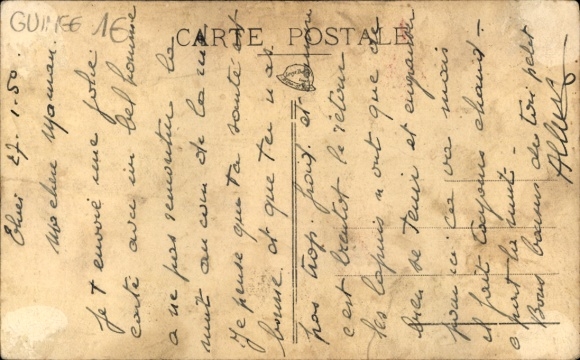 GUINEE 1€
CARTE POSTALE
27.1.50.
Ma chère Maman.
Je t'envoie une jolie
carte avec un bel homme
a ne pas rencontrer la
nuit au coin de la rue
Je pense que ta santé est
bonne et que tu n'as
pas trop froid et maman
c'est bientôt le retour
les lapins n'ont que de
bien se tenir et engraisser
pour ici ça va mais
il fait toujours chaud -
a part la nuit -
Bons baisers de ton petit
Albert